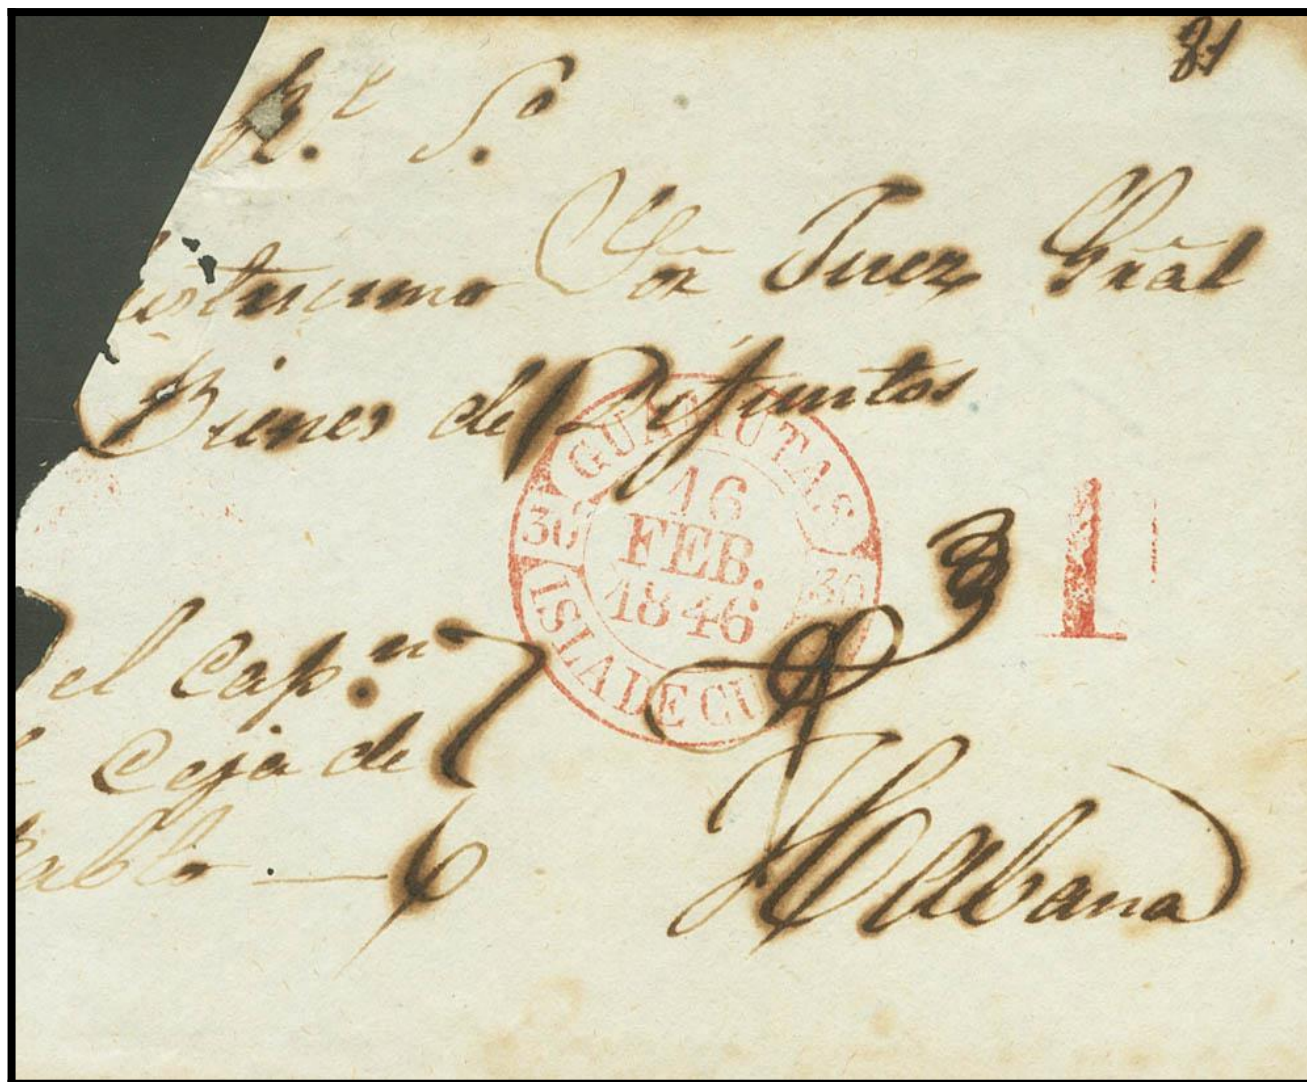 81
R.l S.o
ustrisimo Sor Juez Gral
Bienes de Difuntos
GUAMUTAS
30 16 30
FEB.
1846
ISLA DE CU
1
el Cap.n
Ceja de
Pablo
Habana